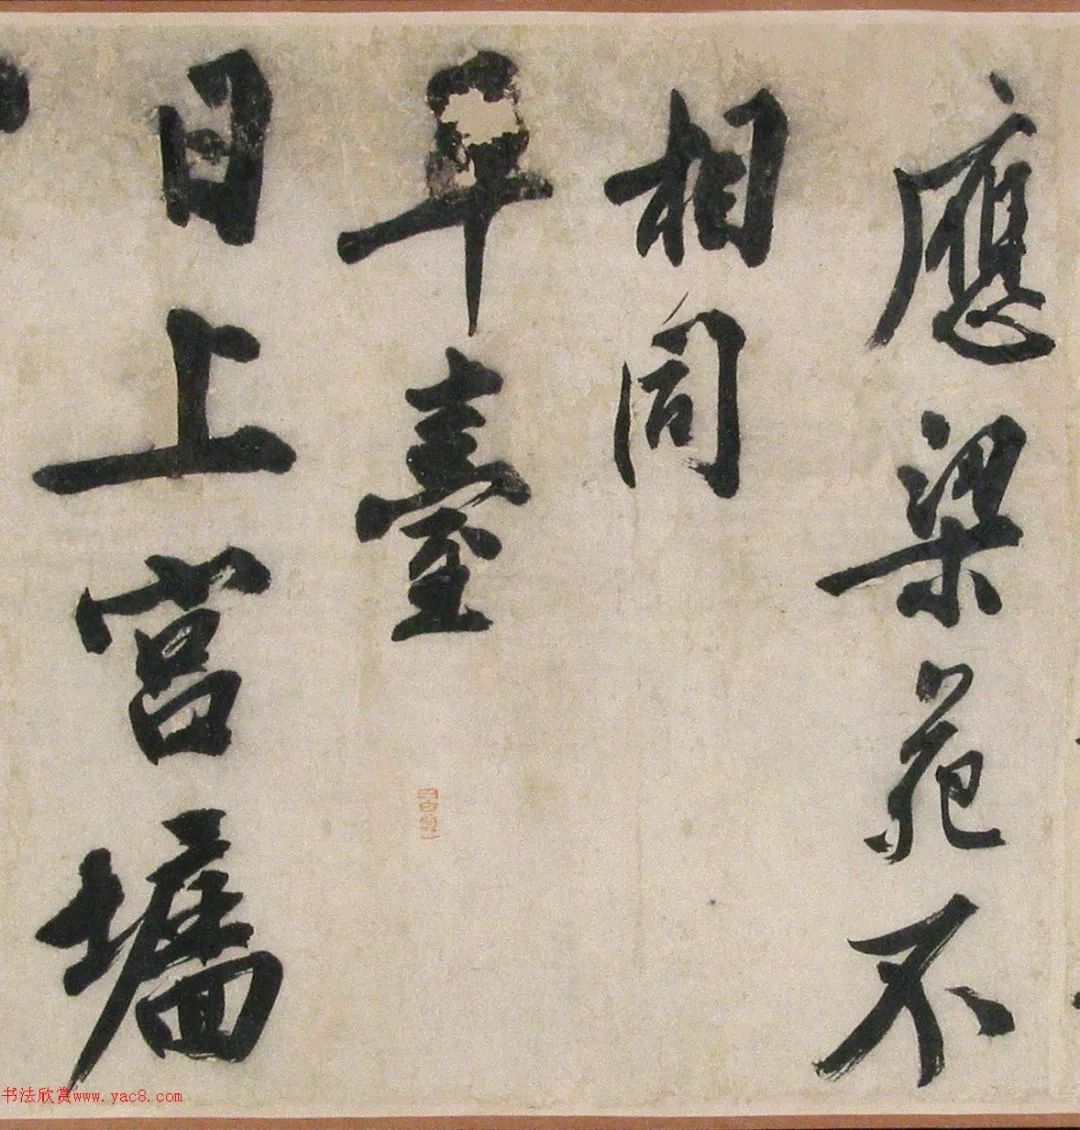 應梁苑不
相同
早臺
日上宮墻
书法欣赏www.yac8.com